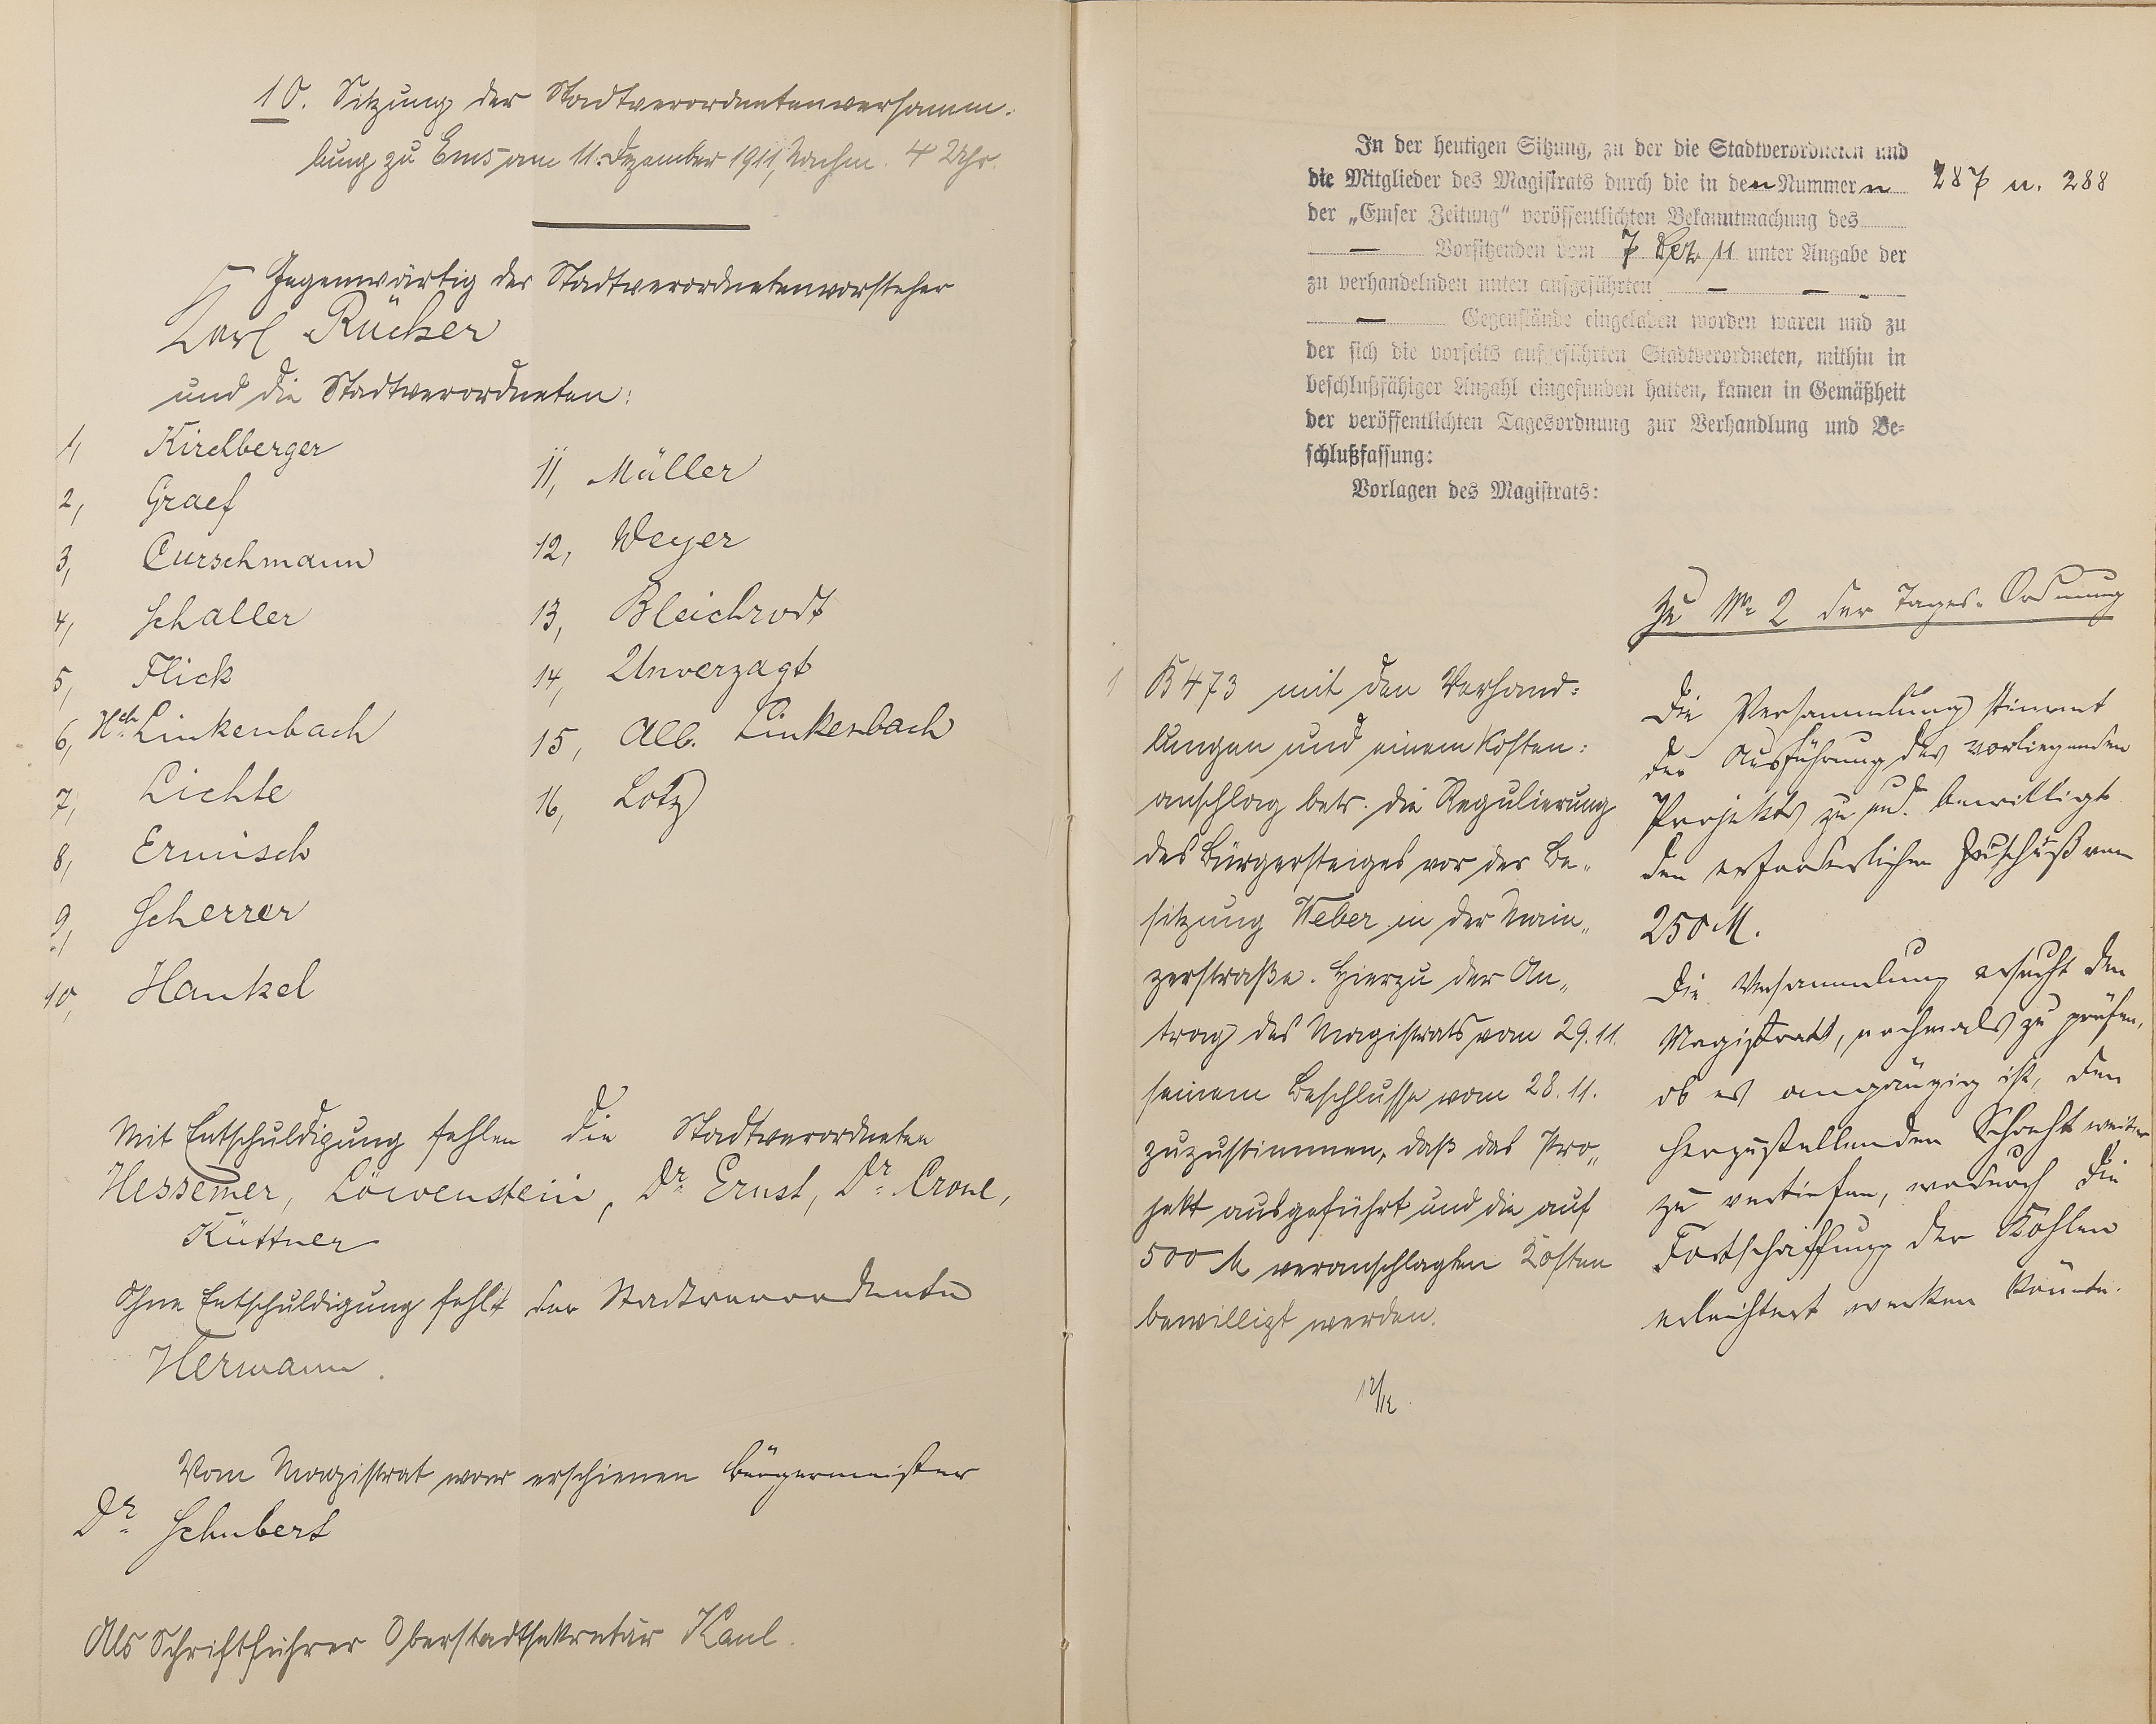 10. Sitzung der Stadtverordnetenversamm-
lung zu Ems am 11. Dezember 1911, Nachm. 4 Uhr.
Gegenwärtig der Stadtverordnetenvorsteher
Karl Rücker
und die Stadtverordneten:
1, Kirchberger
2, Graef
3, Curschmann
4, Schaller
5, Flick
6, Hch. Linkenbach
7, Lichte
8, Ermisch
9, Scherrer
10, Hankel
11, Müller
12, Weyer
13, Bleichrodt
14, Unverzagt
15, Alb. Linkenbach
16, Lotz
Mit Entschuldigung fehlen die Stadtverordneten
Hessemer, Löwenstein, Dr. Ernst, Dr. Crone,
Küttner
Ohne Entschuldigung fehlt der Stadtverordnete
Hermann.
Vom Magistrat war erschienen Bürgermeister
Dr. Schubert
Als Schriftführer Oberstadtsekretär Kaul.
In der heutigen Sitzung, zu der die Stadtverordneten und
die Mitglieder des Magistrats durch die in den Nummern 287 u. 288
der „Emser Zeitung" veröffentlichten Bekanntmachung des
— Vorsitzenden vom 7 Dez. 11 unter Angabe der
zu verhandelnden unten aufgeführten — — -
— Gegenstände eingeladen worden waren und zu
der sich die vorseits aufgeführten Stadtverordneten, mithin in
beschlußfähiger Anzahl eingefunden hatten, kamen in Gemäßheit
der veröffentlichten Tagesordnung zur Verhandlung und Be-
schlußfassung:
Vorlagen des Magistrats:
1 B 473 mit den Verhand-
lungen und einem Kosten-
anschlag betr. die Regulierung
des Bürgersteiges vor der Be-
sitzung Weber in der Main-
zerstraße. Hierzu der An-
trag des Magistrats vom 29.11.
seinem Beschlusse vom 28.11.
zuzustimmen, daß das Pro-
jekt ausgeführt und die auf
500 M veranschlagten Kosten
bewilligt werden.
12/12.
Zu No 2 der Tages-Ordnung
Die Versammlung stimmt
der Ausführung des vorliegenden
Projekts zu und bewilligt
den erforderlichen Zuschuß von
250 M.
Die Versammlung ersucht den
Magistrat, nochmals zu prüfen,
ob es angängig ist, den
herzustellenden Schacht weiter
zu vertiefen, wodurch die
Fortschaffung der Kohlen
erleichtert werden könnte.